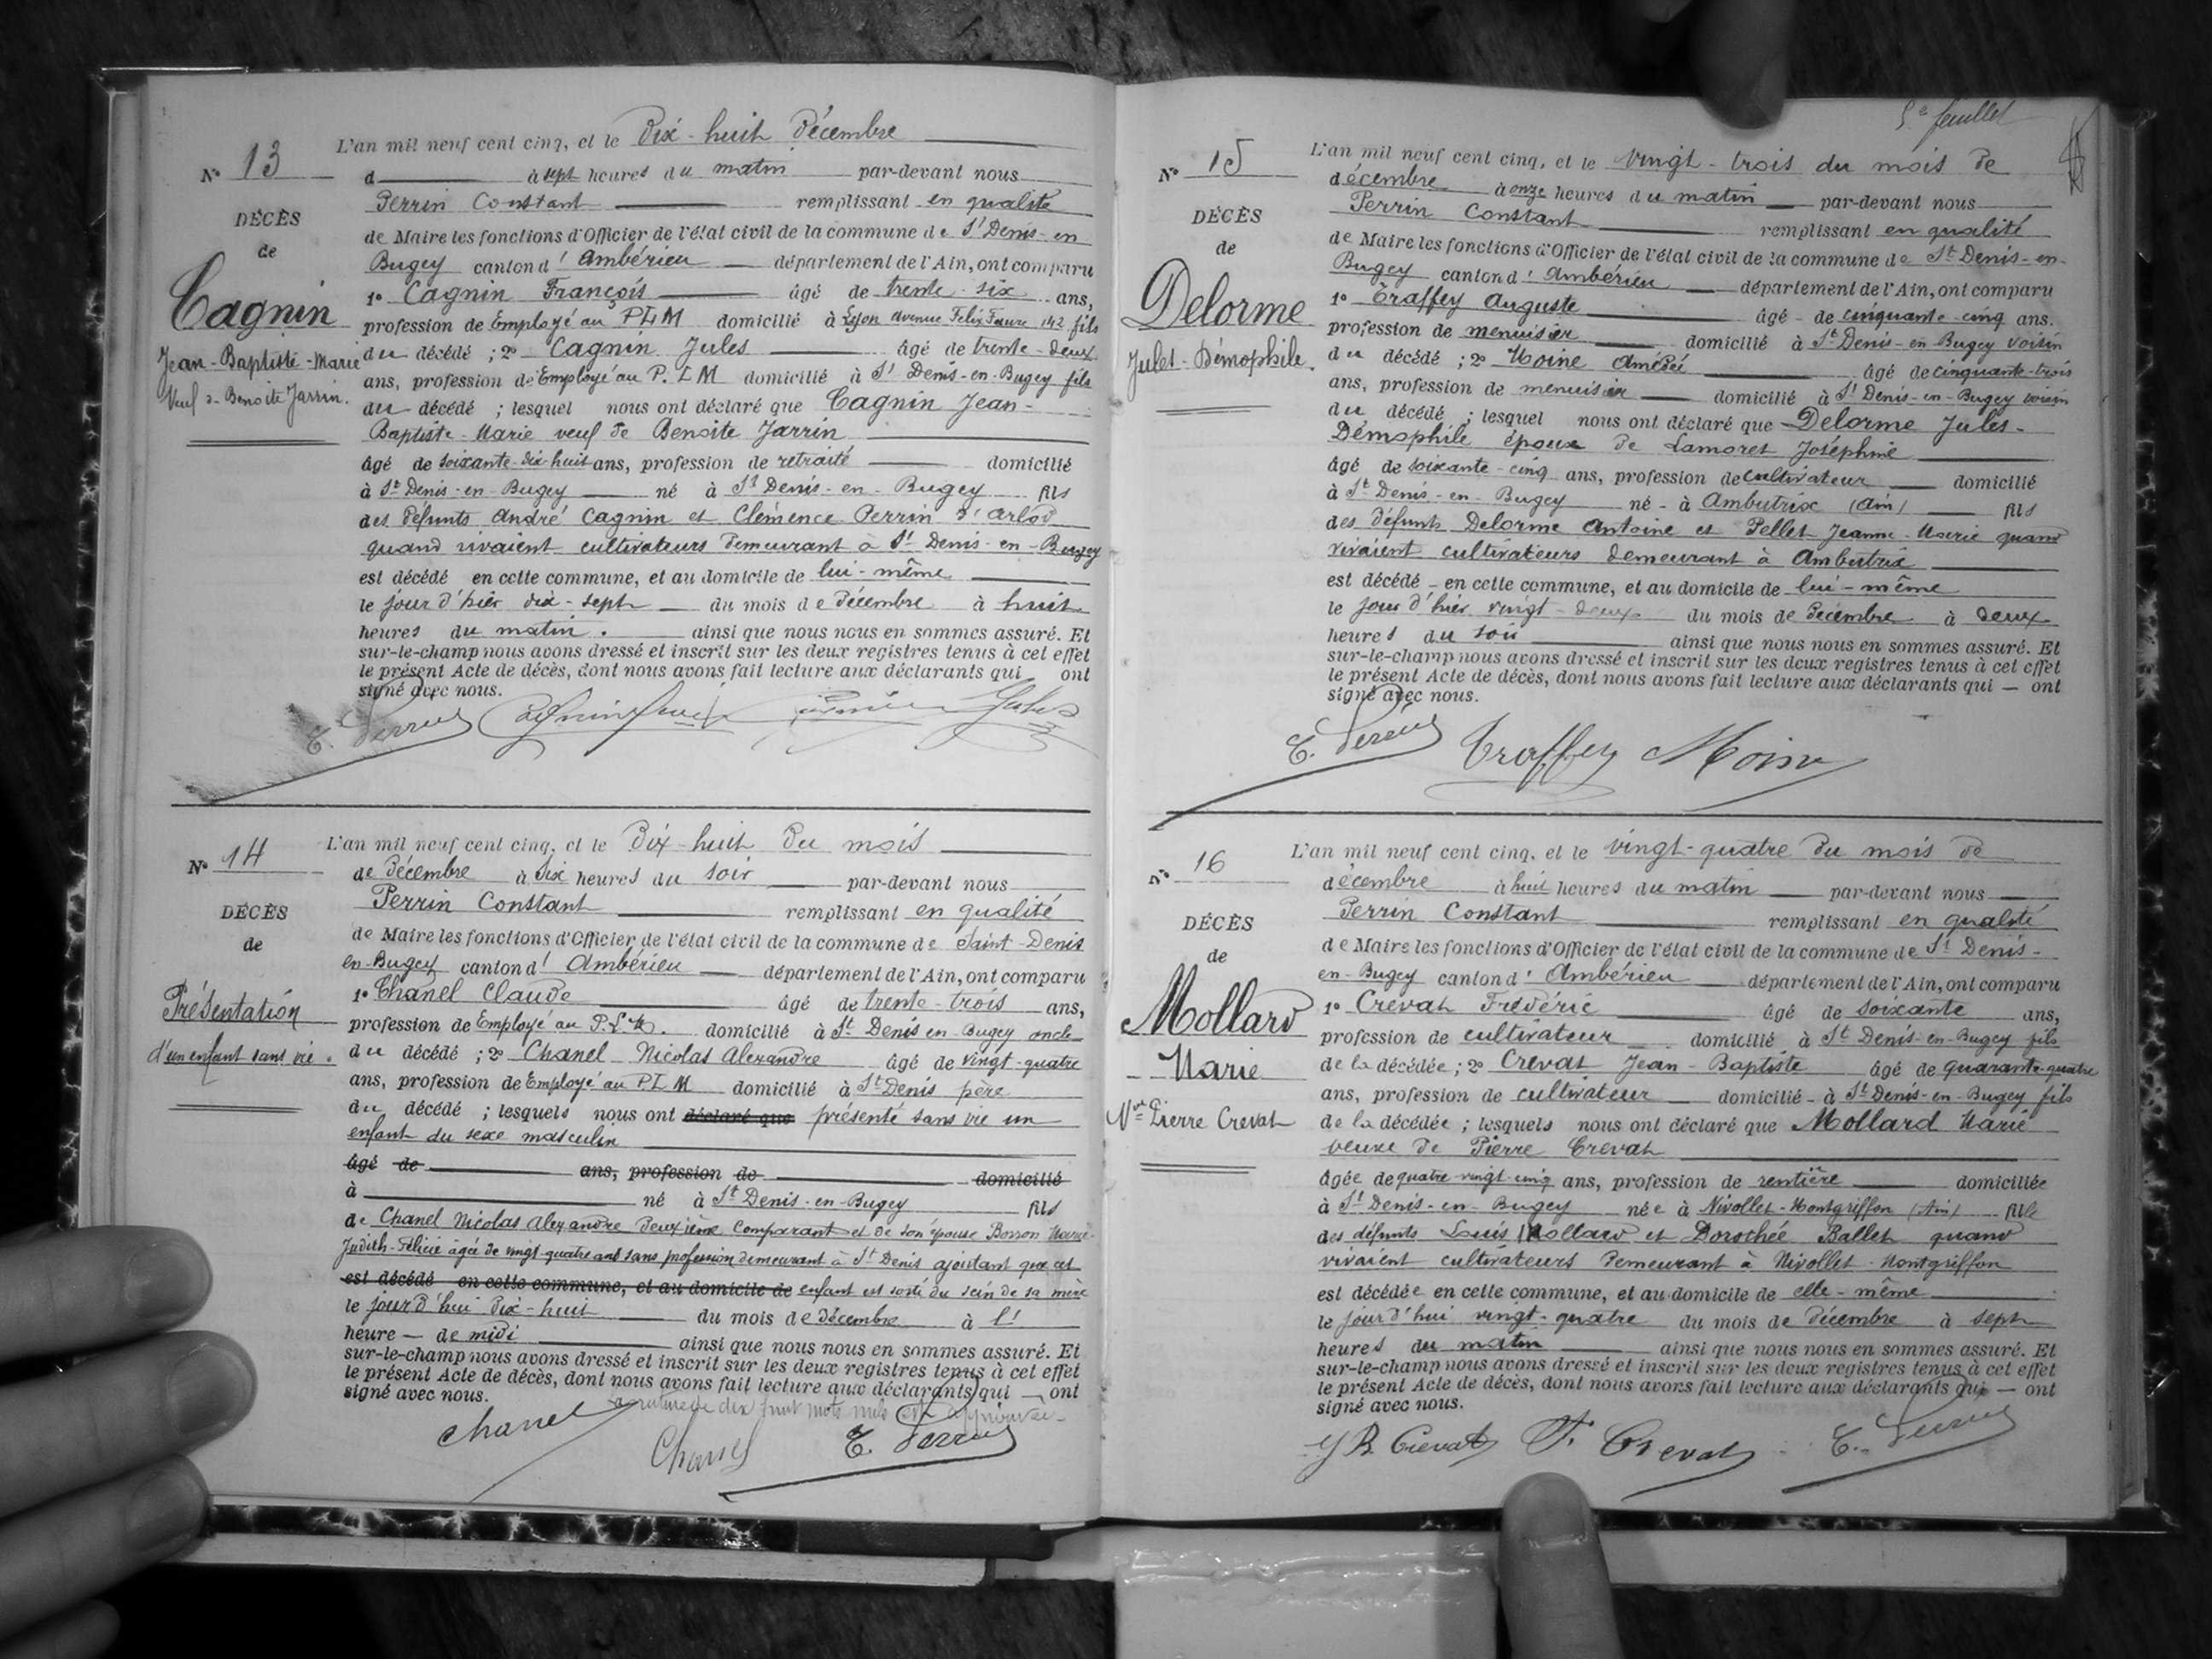 N° 13
DÉCÈS
de
Cagnin
Jean-Baptiste-Marie
Veuf de Benoite Jarrin.
L'an mil neuf cent cinq, et le Dix-huit Décembre
d à sept heures du matin par-devant nous
Perrin Constant remplissant en qualité
de Maire les fonctions d'Officier de l'état civil de la commune de St Denis-en
Bugey canton d'Ambérieu département de l'Ain, ont comparu
1° Cagnin François âgé de trente-six ans,
profession de Employé au PLM domicilié à Lyon avenue Félix Faure 142 fils
du décédé ; 2° Cagnin Jules âgé de trente-deux
ans, profession de Employé au P.L M domicilié à St Denis-en-Bugey fils
du décédé ; lesquel nous ont déclaré que Cagnin Jean-
Baptiste-Marie veuf de Benoite Jarrin
âgé de soixante-dix-huit ans, profession de retraité domicilié
à St Denis-en-Bugey né à St Denis-en-Bugey fils
des défunts André Cagnin et Clémence Perrin d'Arlod
quand vivaient cultivateurs demeurant à St Denis-en-Bugey
est décédé en cette commune, et au domicile de lui-même
le jour d'hier dix-sept du mois de Décembre à huit
heures du matin. ainsi que nous nous en sommes assuré. Et
sur-le-champ nous avons dressé et inscrit sur les deux registres tenus à cet effet
le présent Acte de décès, dont nous avons fait lecture aux déclarants qui ont
signé avec nous.
C. Perrin Jules
N° 14
DÉCÈS
de
Présentation
d'un enfant sans vie.
L'an mil neuf cent cinq, et le Dix-huit du mois
de Décembre à Six heures du soir par-devant nous
Perrin Constant remplissant en qualité
de Maire les fonctions d'Officier de l'état civil de la commune de Saint-Denis
en-Bugey canton d'Ambérieu département de l'Ain, ont comparu
1° Chanel Claude âgé de trente-trois ans,
profession de Employé au P.L.M. domicilié à St Denis en-Bugey oncle
du décédé ; 2° Chanel Nicolas Alexandre âgé de vingt-quatre
ans, profession de Employé au PLM domicilié à St Denis père
du décédé ; lesquels nous ont déclaré que présenté sans vie un
enfant du sexe masculin
âgé de ans, profession de domicilié
à né à St Denis-en-Bugey fils
de Chanel Nicolas Alexandre deuxième Comparant et de son épouse Borron Marie-
Judith-Félicie âgée de vingt-quatre ans sans profession demeurant à St Denis ajoutant que cet
est décédé en cette commune, et au domicile de enfant est sorti du sein de sa mère
le jour d'hui Dix-huit du mois de décembre à l'
heure de midi ainsi que nous nous en sommes assuré. Et
sur-le-champ nous avons dressé et inscrit sur les deux registres tenus à cet effet
le présent Acte de décès, dont nous avons fait lecture aux déclarants qui — ont
signé avec nous. La rature de dix huit mots nuls est approuvée
Chanel Chanel C. Perrin
5e feuillet
N° 15
DÉCÈS
de
Delorme
Jules-Démophile.
L'an mil neuf cent cinq, et le Vingt-trois du mois de
décembre à onze heures du matin par-devant nous
Perrin Constant remplissant en qualité
de Maire les fonctions d'Officier de l'état civil de la commune de St Denis-en-
Bugey canton d'Ambérieu département de l'Ain, ont comparu
1° Traffey Auguste âgé de cinquante-cinq ans.
profession de menuisier domicilié à St Denis-en Bugey voisin
du décédé ; 2° Moine Amédée âgé de cinquante-trois
ans, profession de menuisier domicilié à St Denis-en-Bugey voisin
du décédé ; lesquel nous ont déclaré que Delorme Jules-
Démophile époux de Lamoret Joséphine
âgé de soixante-cinq ans, profession de cultivateur domicilié
à St Denis-en-Bugey né à Ambutrix (Ain) fils
des défunts Delorme Antoine et Pellet Jeanne-Marie quand
vivaient cultivateurs demeurant à Ambutrix
est décédé en cette commune, et au domicile de lui-même
le jour d'hier vingt-deux du mois de Décembre à deux
heures du soir ainsi que nous nous en sommes assuré. Et
sur-le-champ nous avons dressé et inscrit sur les deux registres tenus à cet effet
le présent Acte de décès, dont nous avons fait lecture aux déclarants qui — ont
signé avec nous.
C. Perrin Traffey Moine
N° 16
DÉCÈS
de
Mollard
Marie
Vve Pierre Crevat
L'an mil neuf cent cinq, et le vingt-quatre du mois de
décembre à huit heures du matin par-devant nous
Perrin Constant remplissant en qualité
de Maire les fonctions d'Officier de l'état civil de la commune de St Denis-
en-Bugey canton d'Ambérieu département de l'Ain, ont comparu
1° Crevat Frédéric âgé de soixante ans,
profession de cultivateur domicilié à St Denis-en-Bugey fils
de la décédée ; 2° Crevat Jean-Baptiste âgé de quarante-quatre
ans, profession de cultivateur domicilié à St Denis-en-Bugey fils
de la décédée ; lesquels nous ont déclaré que Mollard Marie
veuve de Pierre Crevat
âgée de quatre-vingt-cinq ans, profession de rentière domiciliée
à St Denis-en-Bugey née à Nivollet-Montgriffon (Ain) fille
des défunts Louis Mollard et Dorothée Ballet quand
vivaient cultivateurs demeurant à Nivollet-Montgriffon
est décédée en cette commune, et au domicile de elle-même
le jour d'hui vingt-quatre du mois de Décembre à sept
heures du matin ainsi que nous nous en sommes assuré. Et
sur-le-champ nous avons dressé et inscrit sur les deux registres tenus à cet effet
le présent Acte de décès, dont nous avons fait lecture aux déclarants qui — ont
signé avec nous.
J B. Crevat F. Crevat C. Perrin